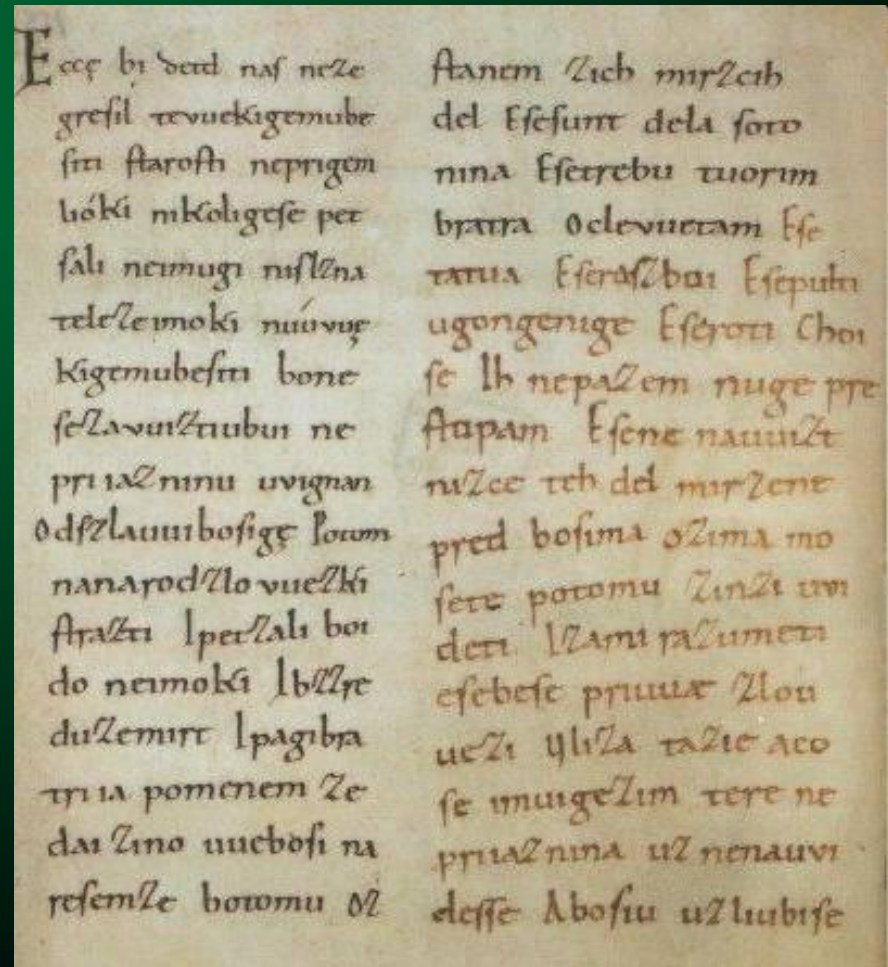 Eccę bi detd naſ neze
greſil tevuekigemube
ſiti ſtaroſti neprigem
lióki nikoligeſe pet
ſali neimugi niſlzna
teleze imoki nuúvuę
kigemubeſiti bone
ſezavuiztiubui ne
priiazninu uvignan
Odſzlauuiboſigę Potom
nanarodzlovuezki
ſtrazti Ipetzali boi
do neimoki Ibzzre
duzemirt Ipagibra
triia pomenem ze
dai zino uueboſi na
reſemze botomu oz
ſtanem zich mirzcih
del Eſeſunt dela ſoto
nina Eſetrebu tuorim
bratra Oclevuetam Eſe
tatua Eſeraſzboi Eſepulti
ugongenige Eſeroti Choi
ſe Ih nepazem nuge pre
ſtupam Eſene nauuizt
nizce teh del mirzene
pred boſima ozima mo
ſete potomu zinzi uvi
deti Izami razumeti
eſebeſe priuuæ zlou
uezi Uliza tazie aco
ſe imuigezim tere ne
priiaznina uz nenauvi
deſſe Aboſiu uzliubiſe